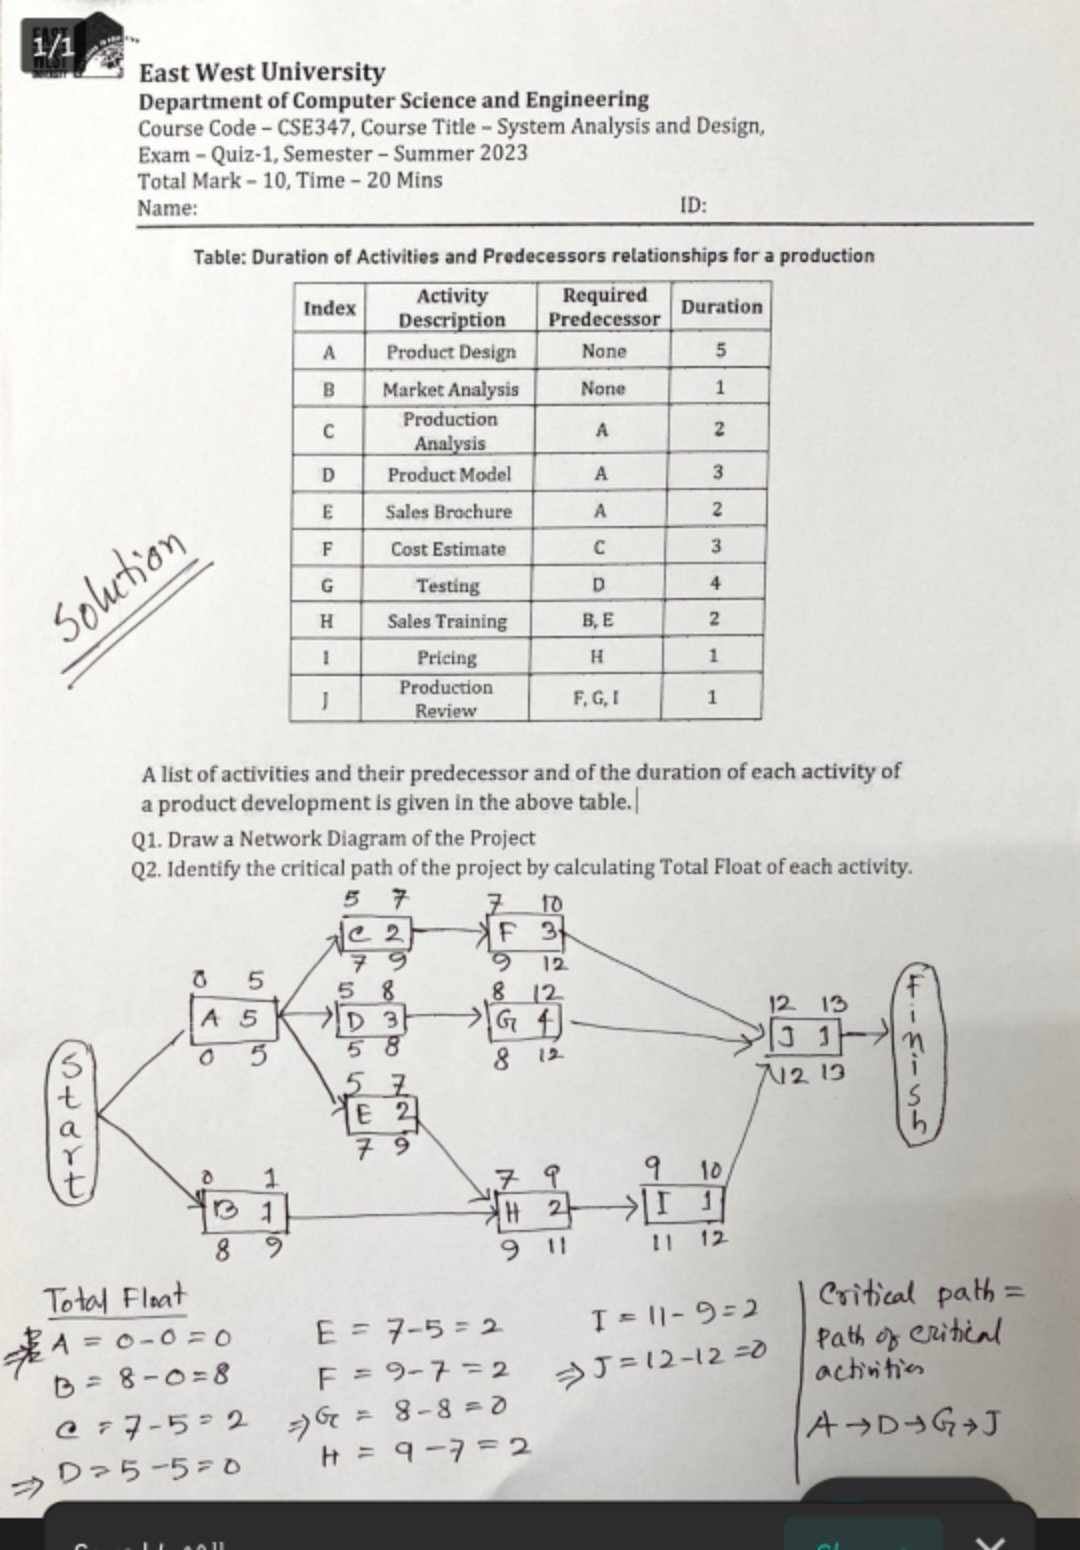 1/1
EAST
WEST
UNIVERSITY
East West University
Department of Computer Science and Engineering
Course Code – CSE347, Course Title – System Analysis and Design,
Exam – Quiz-1, Semester – Summer 2023
Total Mark – 10, Time – 20 Mins
Name: ID:
Table: Duration of Activities and Predecessors relationships for a production
Index Activity Description Required Predecessor Duration
A Product Design None 5
B Market Analysis None 1
C Production Analysis A 2
D Product Model A 3
E Sales Brochure A 2
F Cost Estimate C 3
G Testing D 4
H Sales Training B, E 2
I Pricing H 1
J Production Review F, G, I 1
Solution
A list of activities and their predecessor and of the duration of each activity of
a product development is given in the above table.
Q1. Draw a Network Diagram of the Project
Q2. Identify the critical path of the project by calculating Total Float of each activity.
5 7 7 10
C 2 F 3
7 9 9 12
0 5 5 8 8 12 12 13
A 5 D 3 G 4 J 1
0 5 5 8 8 12 12 13
Start
Finish
5 7
E 2
7 9
0 1 7 9 9 10
B 1 H 2 I 1
8 9 9 11 11 12
Total Float
⇒ A = 0-0=0
B = 8-0=8
C = 7-5=2
⇒ D = 5-5=0
E = 7-5=2
F = 9-7=2
⇒ G = 8-8=0
H = 9-7=2
I = 11-9=2
⇒ J = 12-12=0
Critical path =
Path of critical
activities
A→D→G→J